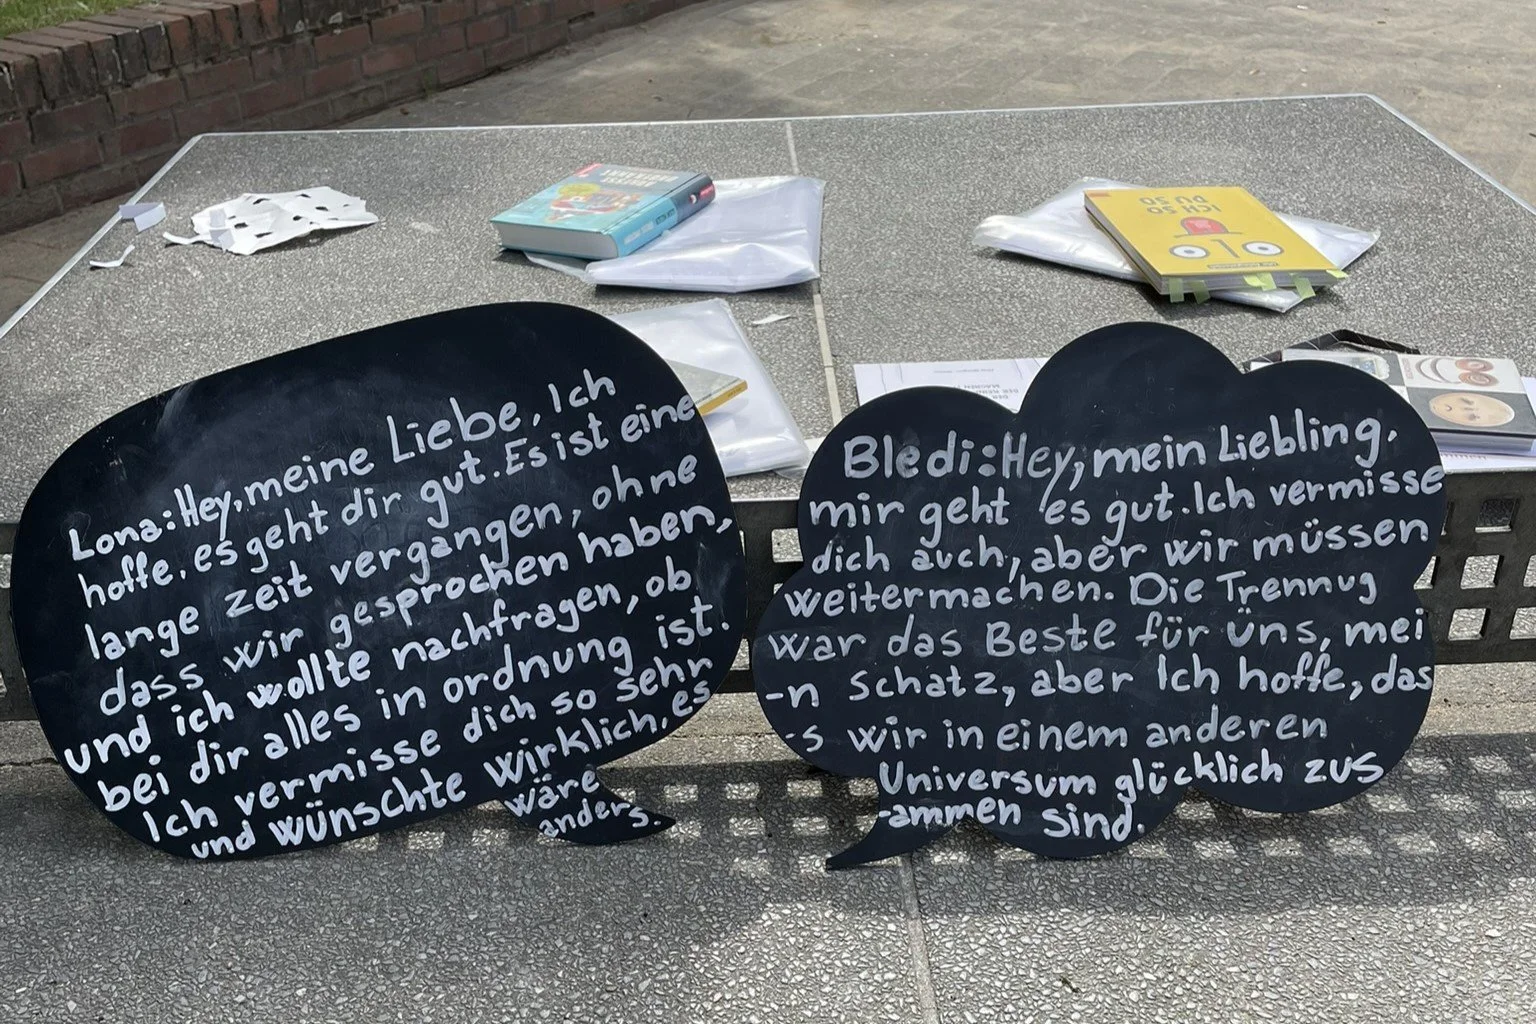 ICH SO
DU SO
Lona: Hey, meine Liebe, Ich
hoffe, es geht dir gut. Es ist eine
lange zeit vergangen, ohne
dass wir gesprochen haben,
und ich wollte nachfragen, ob
bei dir alles in ordnung ist.
Ich vermisse dich so sehr
und wünschte wirklich, es
wäre
anders.
Bledi: Hey, mein Liebling,
mir geht es gut. Ich vermisse
dich auch, aber wir müssen
weitermachen. Die Trennug
war das Beste für Uns, mei
-n Schatz, aber Ich hoffe, das
-s wir in einem anderen
Universum glücklich zus
-ammen sind.